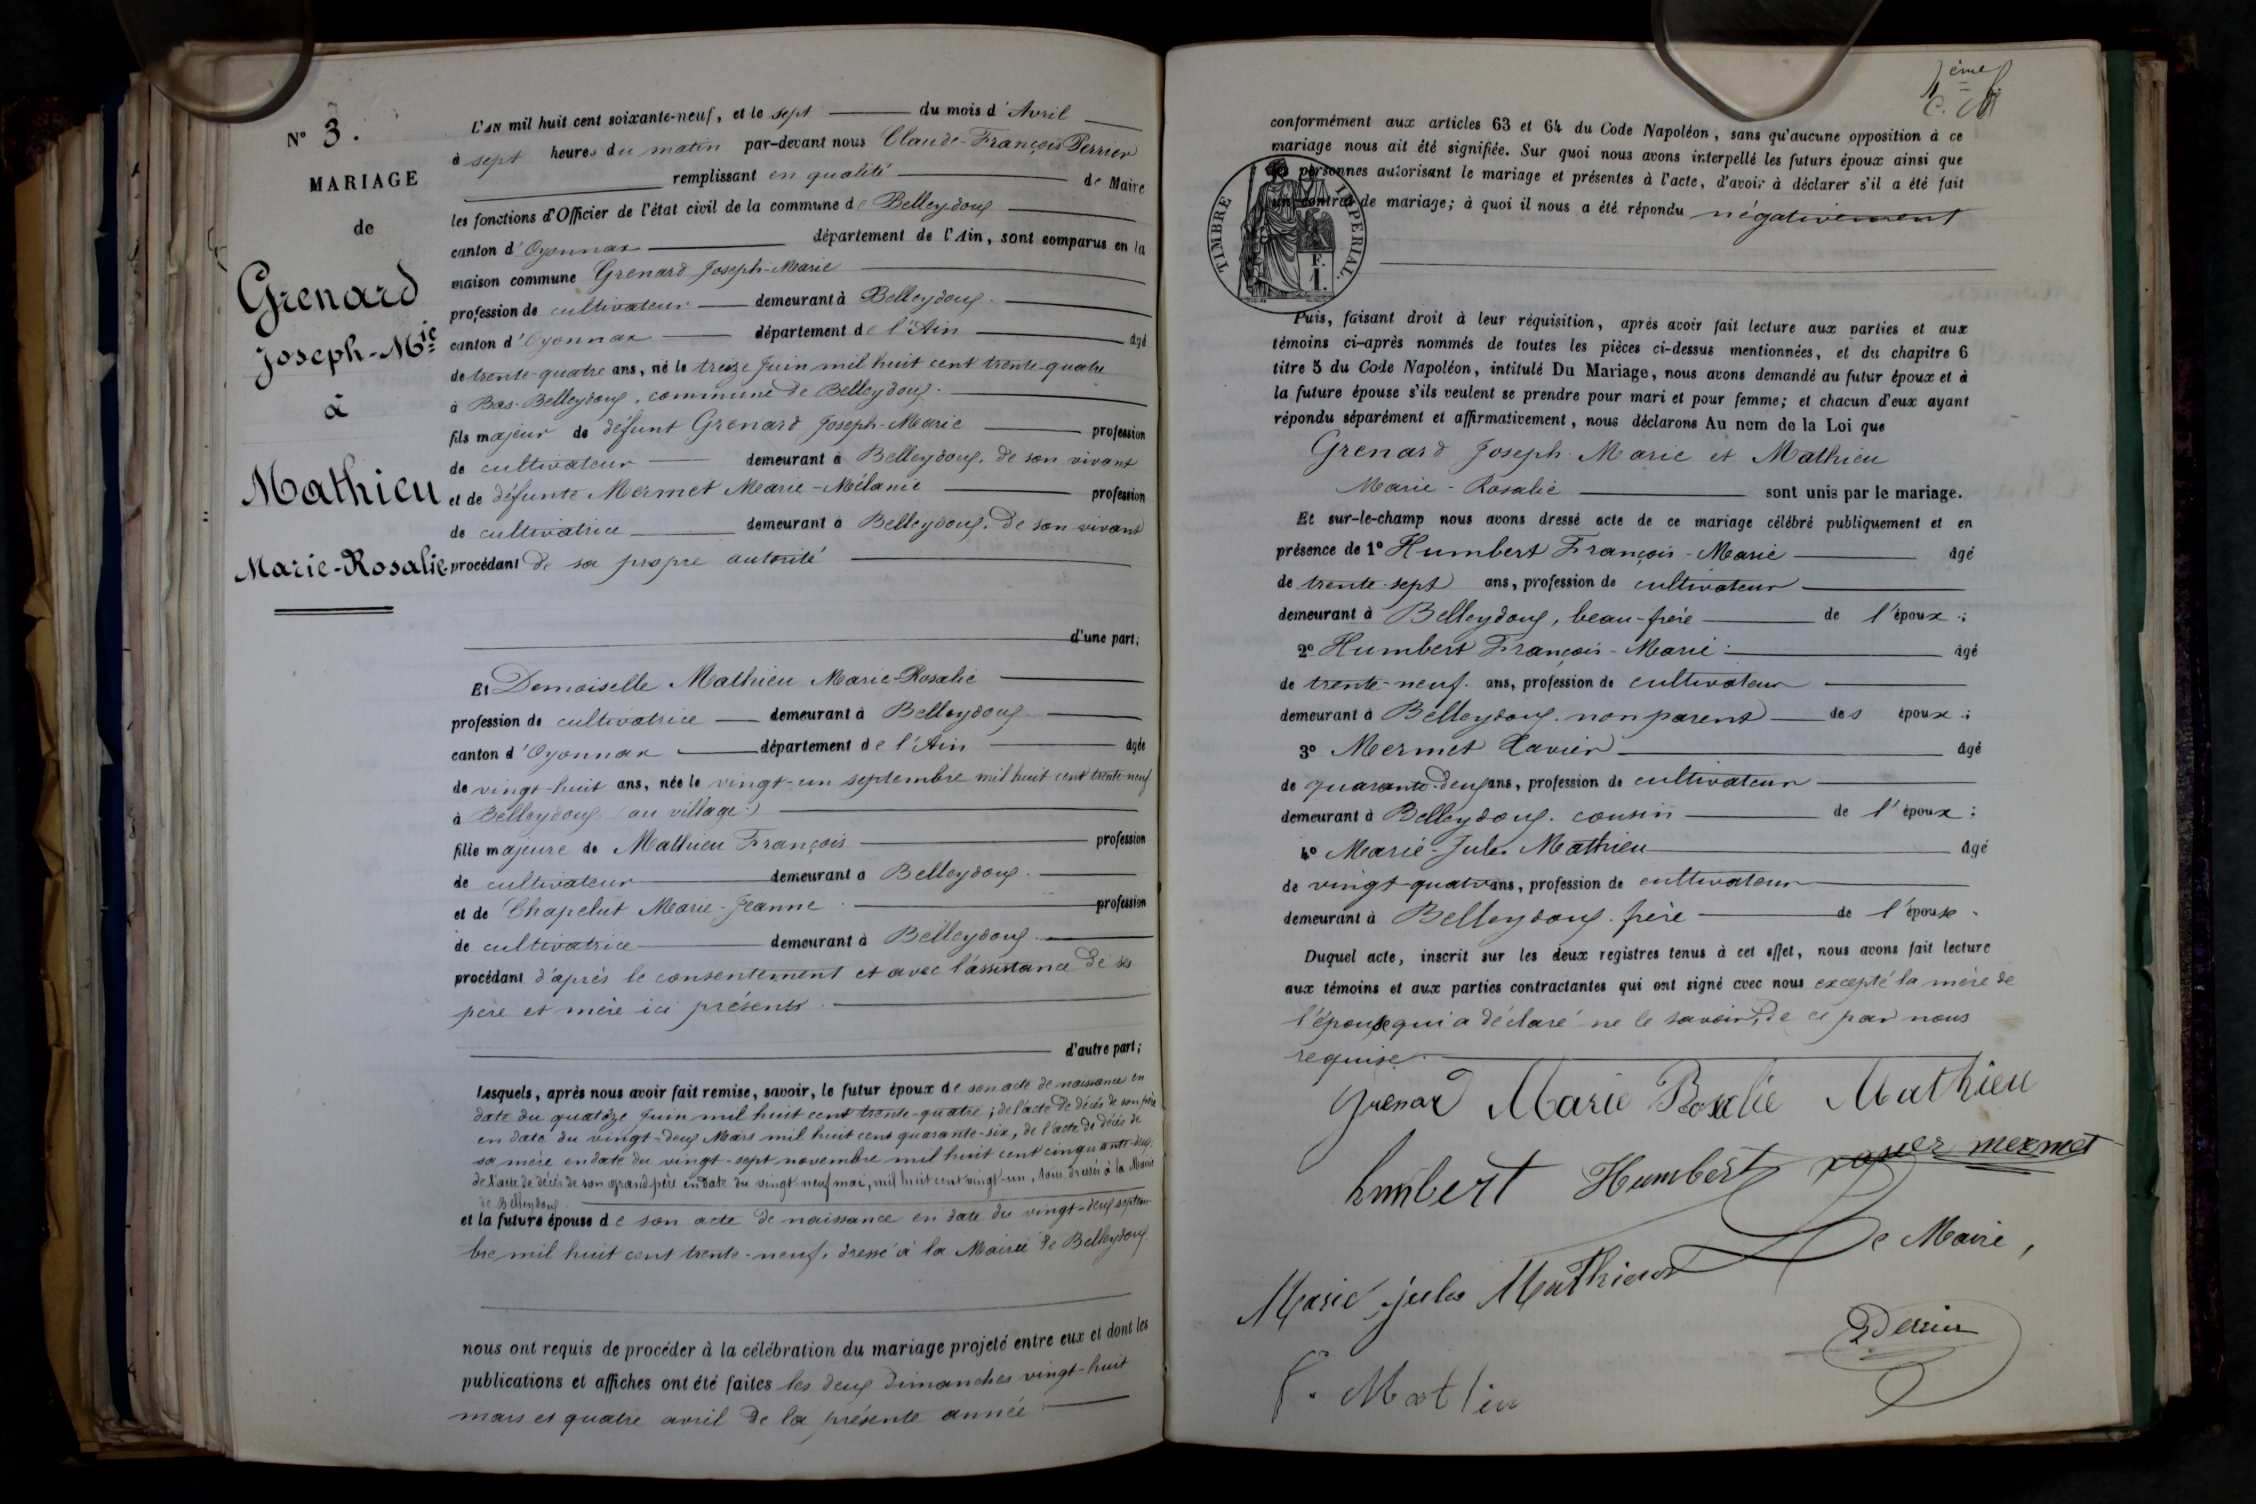 N° 3.
MARIAGE
de
Grenard
Joseph-Mie
à
Mathieu
Marie-Rosalie
L'AN mil huit cent soixante-neuf, et le sept du mois d'Avril
à sept heures du matin par-devant nous Claude-François Perrier
remplissant en qualité de Maire
les fonctions d'Officier de l'état civil de la commune de Belleydoux
canton d'Oyonnax département de l'Ain, sont comparus en la
maison commune Grenard Joseph-Marie
profession de cultivateur demeurant à Belleydoux.
canton d'Oyonnax département de l'Ain âgé
de trente-quatre ans, né le treize Juin mil huit cent trente-quatre
à Bas-Belleydoux, commune de Belleydoux.
fils majeur de défunt Grenard Joseph-Marie profession
de cultivateur demeurant à Belleydoux, de son vivant
et de défunte Mermet Marie-Mélanie profession
de cultivatrice demeurant à Belleydoux, de son vivant
procédant de sa propre autorité
d'une part;
Et Demoiselle Mathieu Marie-Rosalie
profession de cultivatrice demeurant à Belleydoux
canton d'Oyonnax département de l'Ain âgée
de vingt-huit ans, née le vingt-un septembre mil huit cent trente-neuf
à Belleydoux (au village)
fille majeure de Mathieu François profession
de cultivateur demeurant à Belleydoux.
et de Chapelut Marie-Jeanne profession
de cultivatrice demeurant à Belleydoux
procédant d'après le consentement et avec l'assistance de ses
père et mère ici présents.
d'autre part;
Lesquels, après nous avoir fait remise, savoir, le futur époux de son acte de naissance en
date du quatoze Juin mil huit cent trente-quatre; de l'acte de décès de son père
en date du vingt-deux Mars mil huit cent quarante-six, de l'acte de décès de
sa mère en date du vingt-sept novembre mil huit cent cinquante-deux,
de l'acte de décès de son grand-père en date du vingt neuf mai, mil huit cent vingt-un, tous dressés à la Mairie
de Belleydoux
et la future épouse de son acte de naissance en date du vingt-deux septem-
bre mil huit cent trente-neuf, dressé à la Mairie de Belleydoux
nous ont requis de procéder à la célébration du mariage projeté entre eux et dont les
publications et affiches ont été faites les deux Dimanches vingt-huit
mars et quatre avril de la présente année
conformément aux articles 63 et 64 du Code Napoléon, sans qu'aucune opposition à ce
mariage nous ait été signifiée. Sur quoi nous avons interpellé les futurs époux ainsi que
les personnes autorisant le mariage et présentes à l'acte, d'avoir à déclarer s'il a été fait
un contrat de mariage; à quoi il nous a été répondu négativement
TIMBRE IMPERIAL.
F.
1.
Puis, faisant droit à leur réquisition, après avoir fait lecture aux parties et aux
témoins ci-après nommés de toutes les pièces ci-dessus mentionnées, et du chapitre 6
titre 5 du Code Napoléon, intitulé Du Mariage, nous avons demandé au futur époux et à
la future épouse s'ils veulent se prendre pour mari et pour femme; et chacun d'eux ayant
répondu séparément et affirmativement, nous déclarons Au nom de la Loi que
Grenard Joseph-Marie et Mathieu
Marie-Rosalie sont unis par le mariage.
Et sur-le-champ nous avons dressé acte de ce mariage célébré publiquement et en
présence de 1° Humbert François-Marie âgé
de trente-sept ans, profession de cultivateur
demeurant à Belleydoux, beau-frère de l'époux;
2° Humbert François-Marie âgé
de trente-neuf ans, profession de cultivateur
demeurant à Belleydoux non parent des époux;
3° Mermet Xavier âgé
de quarante-deux ans, profession de cultivateur
demeurant à Belleydoux. cousin de l'époux;
4° Marie-Jules Mathieu âgé
de vingt-quatre ans, profession de cultivateur
demeurant à Belleydoux. frère de l'épouse.
Duquel acte, inscrit sur les deux registres tenus à cet effet, nous avons fait lecture
aux témoins et aux parties contractantes qui ont signé avec nous excepté la mère de
l'épouse qui a déclaré ne le savoir, de ce par nous
requise.
Grenard Marie Rosalie Mathieu
humbert Humbert xavier mermet
Le Maire,
Marie jules Mathieu
Perrier
f. Matlieu